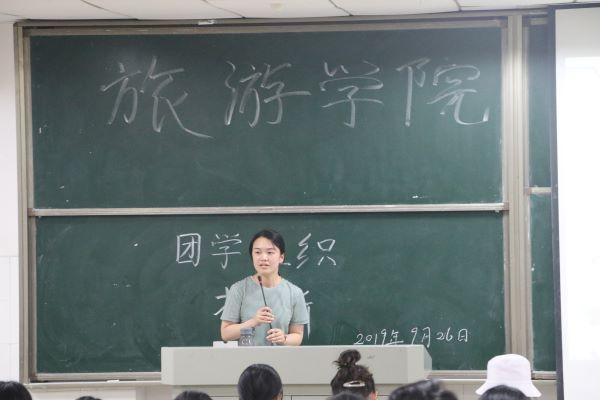 旅游学院
团学组织
2019年9月26日